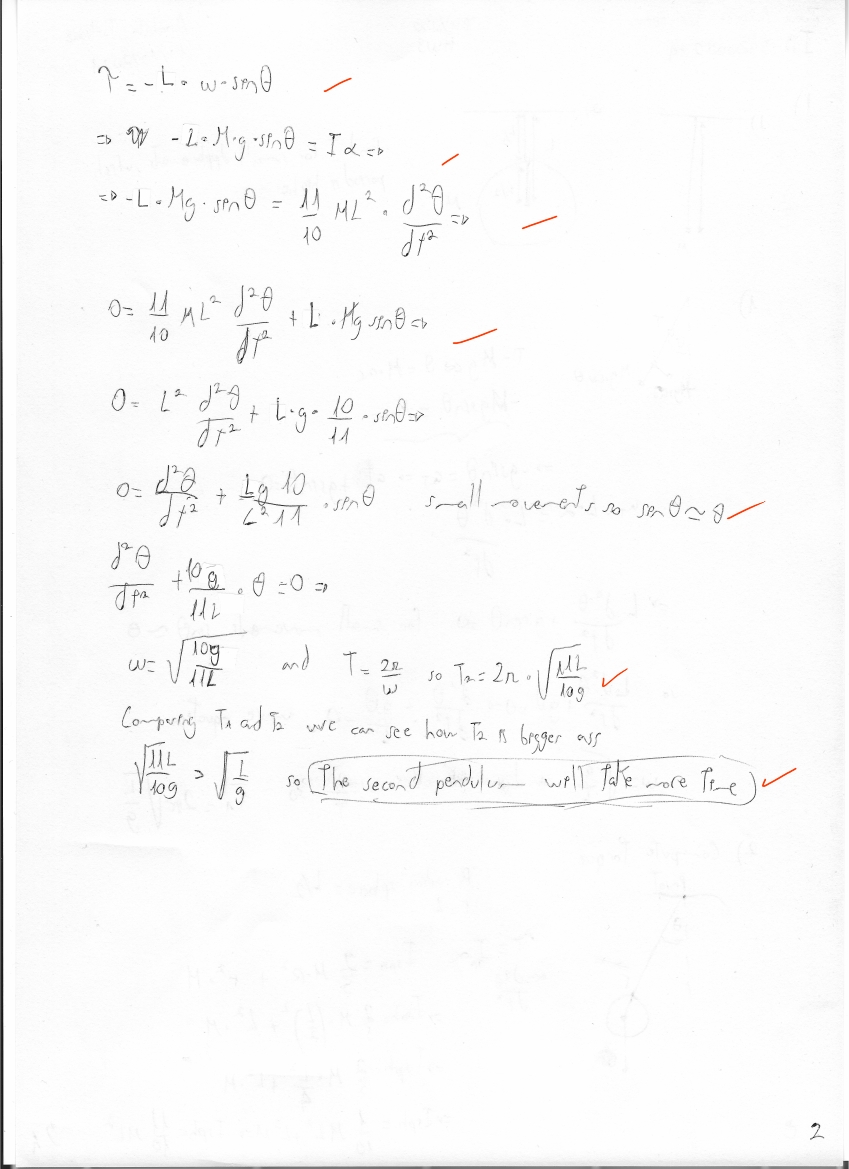 τ = -L · w · senθ
=> -L·M·g·senθ = Iα =>
=> -L·Mg·senθ = 11/10 ML² · d²θ/dt² =>
0 = 11/10 ML² d²θ/dt² + L·Mg senθ =>
0 = L² d²θ/dt² + L·g · 10/11 · senθ =>
0 = d²θ/dt² + Lg 10/L² 11 · senθ small movements so senθ ≃ θ
d²θ/dt² + 10g/11L · θ = 0 =>
w = √(10g/11L) and T = 2π/w so T₂ = 2π · √(11L/10g)
Comparing T₁ ad T₂ we can see how T₂ is bigger as
√(11L/10g) > √(L/g) so The second pendulum will take more time
2